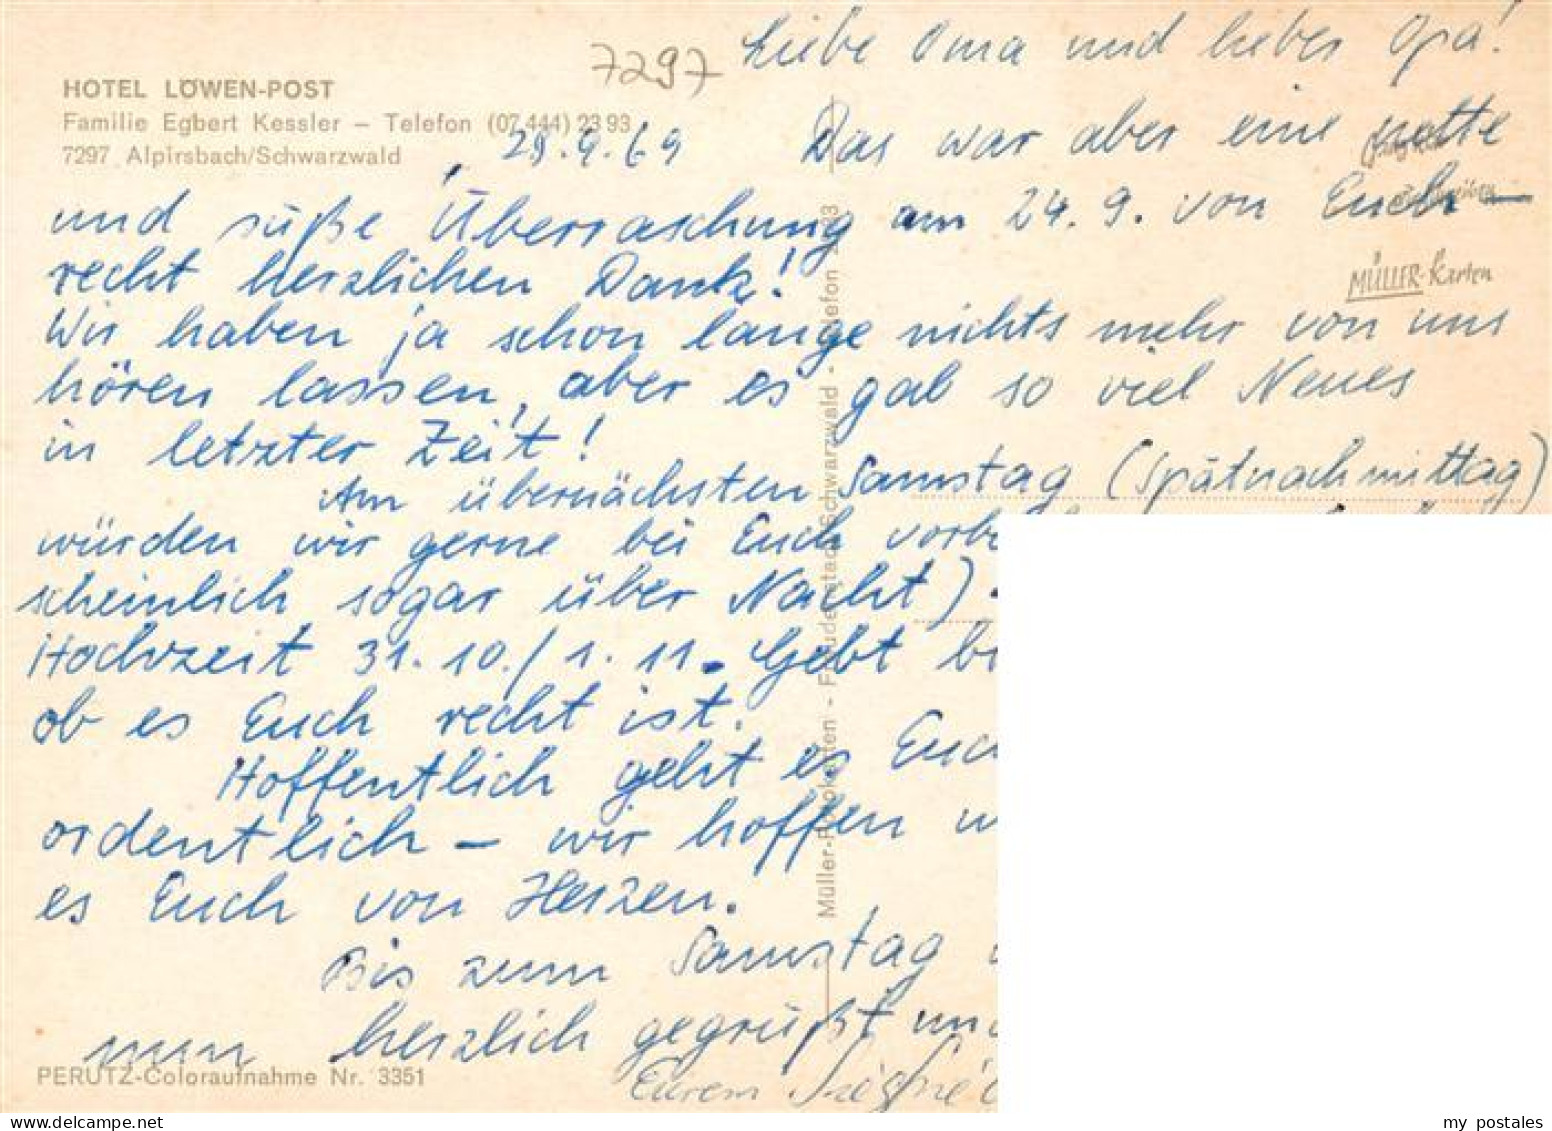 7297
Liebe Oma und lieber Opa!
HOTEL LÖWEN-POST
Familie Egbert Kessler – Telefon (07 444) 23 93
7297 Alpirsbach/Schwarzwald
28.9.69
Das war aber eine nette
und süße Überraschung am 24.9. von Euch –
recht herzlichen Dank!
MÜLLER-Karten
Wir haben ja schon lange nichts mehr von uns
hören lassen, aber es gab so viel Neues
in letzter Zeit!
Am übernächsten Samstag (Spätnachmittag)
würden wir gerne bei Euch
scheinlich sogar über Nacht)
Hochzeit 31.10./1.11. Gebt
ob es Euch recht ist.
Hoffentlich geht es
ordentlich – wir hoffen
es Euch von Herzen.
Bis zum Samstag
nun herzlich gegrüßt
Eurem
PERUTZ-Coloraufnahme Nr. 3351
Müller-Fotokarten - Freudenstadt/Schwarzwald - Telefon
my postales